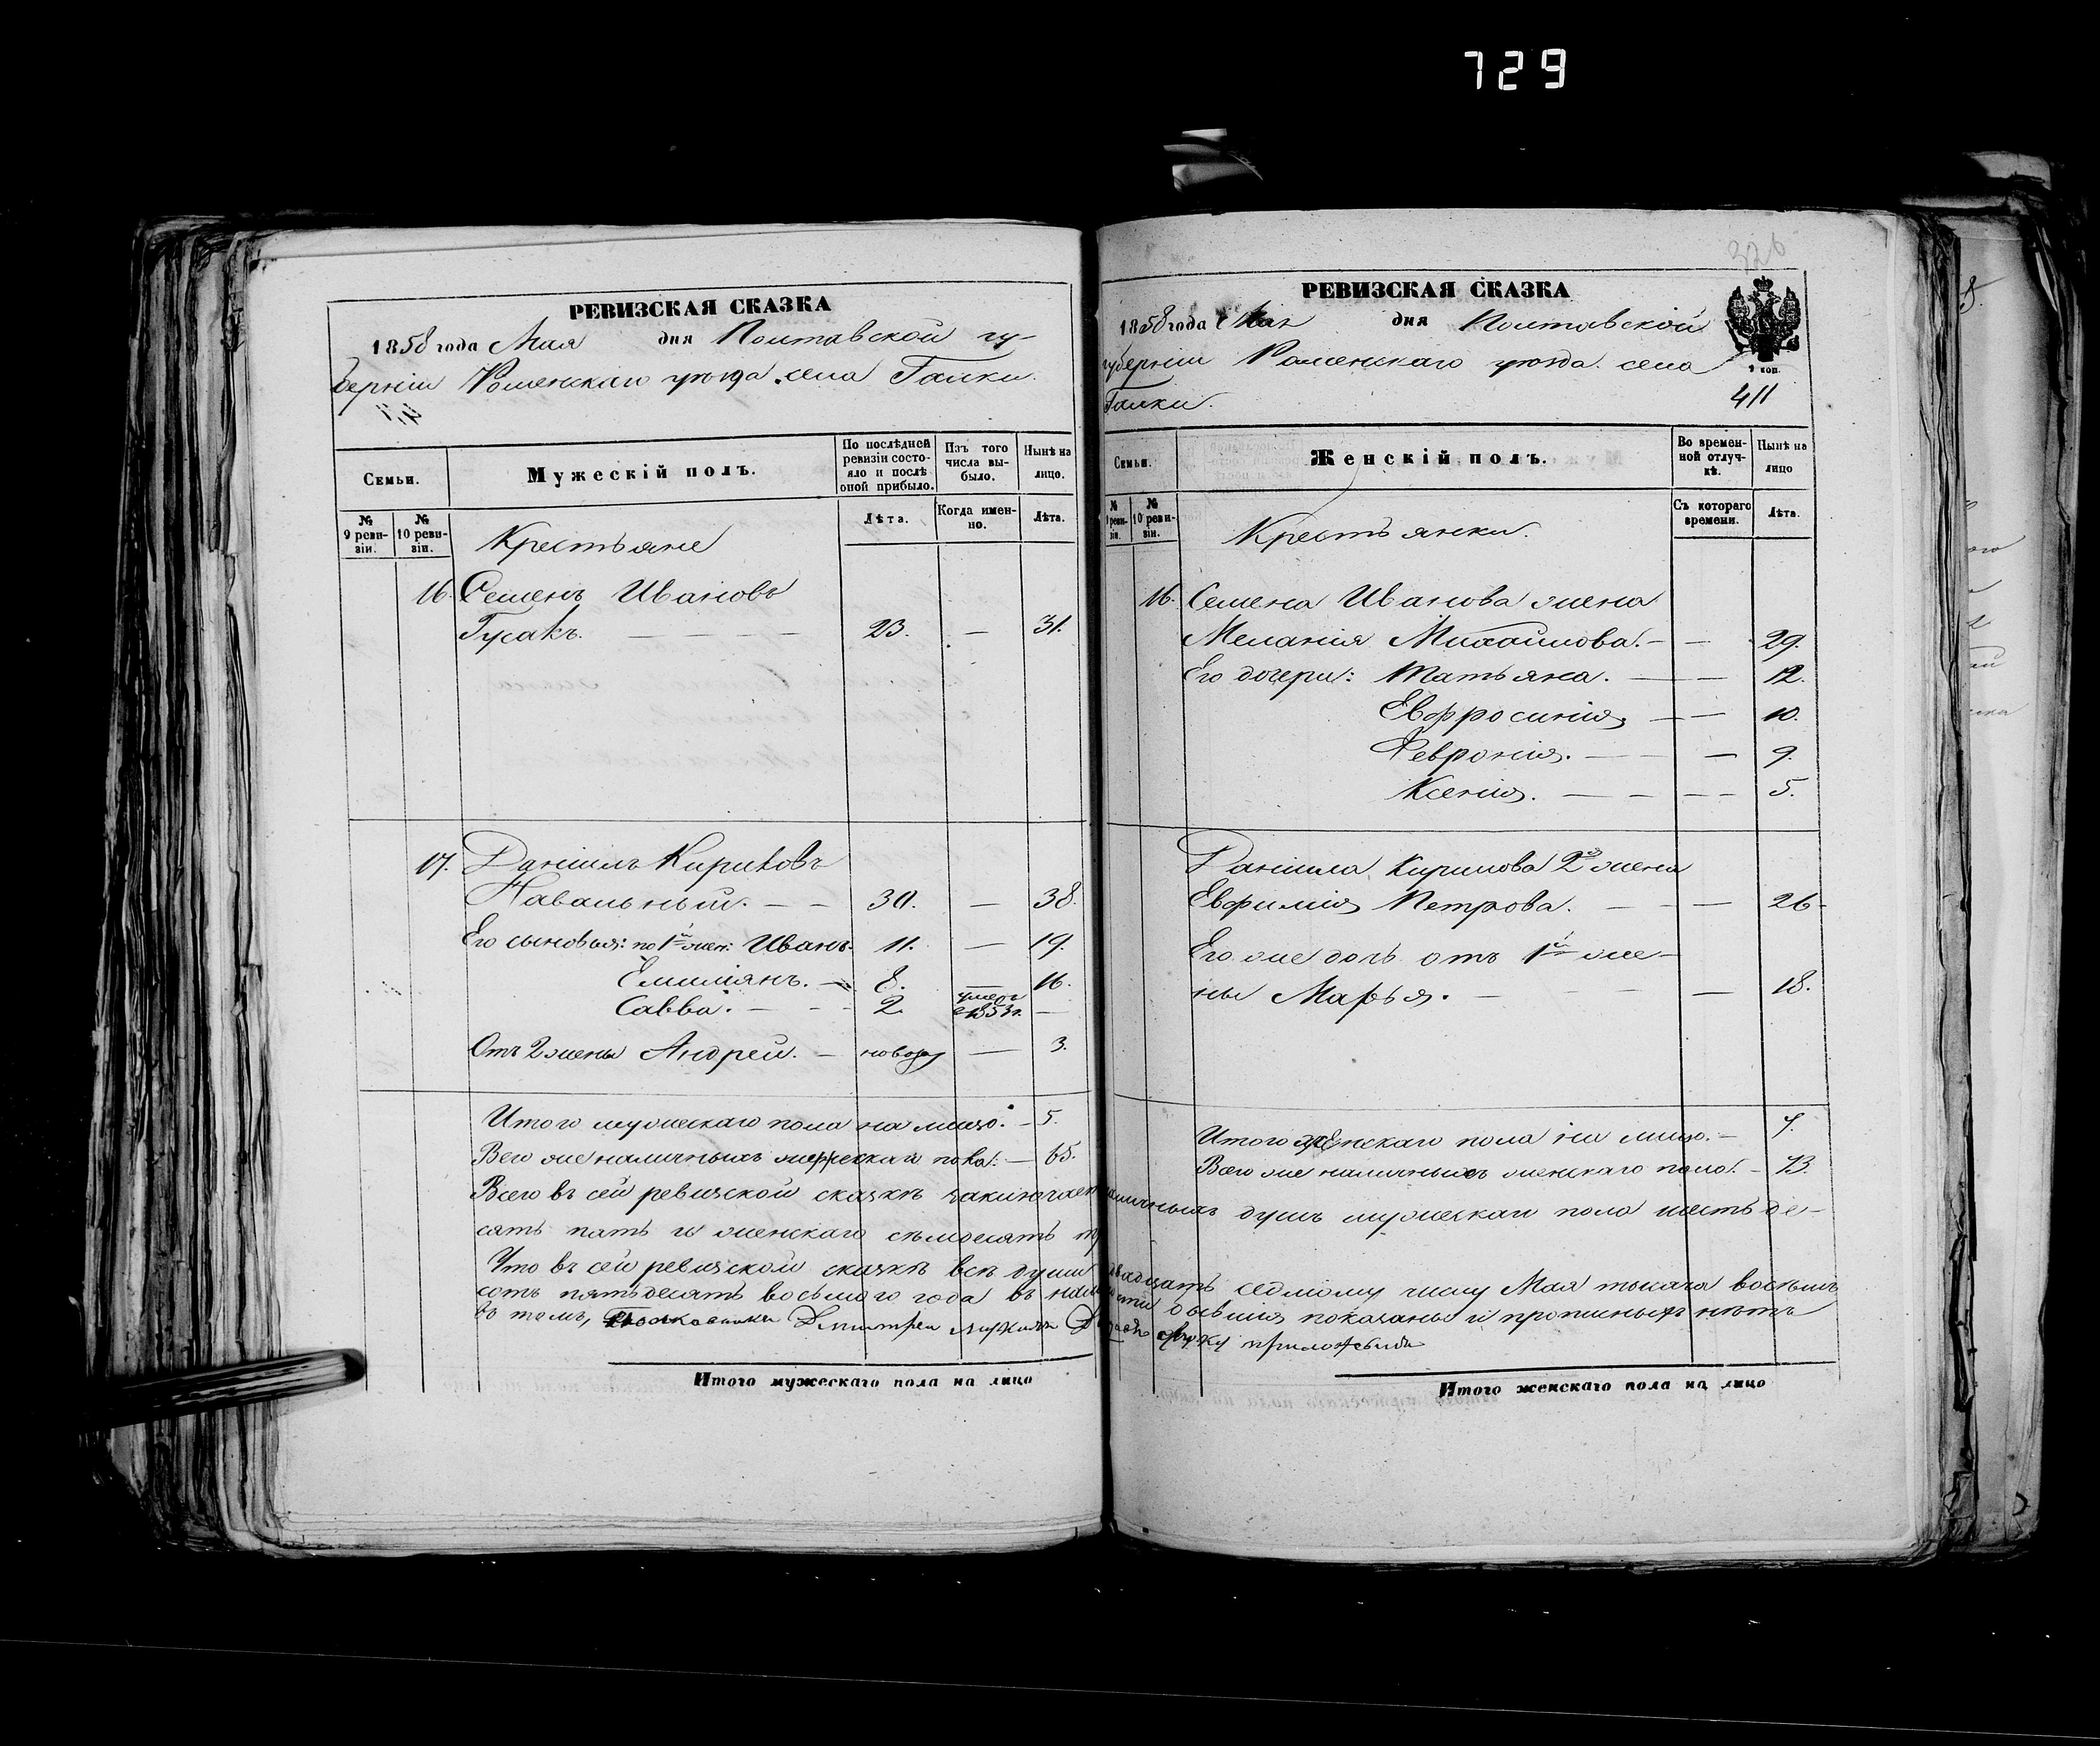 729
РЕВИЗСКАЯ СКАЗКА
1858 года Мая дня Полтавской гу-
берніи Роменскаго уѣзда села Галки.
Семьи.
Мужескій полъ.
По послѣдней ревизіи состояло и послѣ оной прибыло.
Изъ того числа выбыло.
Нынѣ на лицо.
№ 9 ревизіи.
№ 10 ревизіи.
Лѣта.
Когда именно.
Лѣта.
Крестьяне
16. Семенъ Ивановъ
Гусакъ. 23. — 31.
17. Даніилъ Кириловъ
Навальный. 30. — 38.
Его сыновья: по 1й жен: Иванъ. 11. — 19.
Емиліянъ. 8. — 16.
Савва. 2. умеръ въ 1853 г. —
Отъ 2 жены Андрей. — новорж — 3.
Итого мужескаго пола на лицо. — 5.
Всего же наличныхъ мужескаго пола: — 65.
РЕВИЗСКАЯ СКАЗКА
326
1858 года Мая дня Полтавской
губерніи Роменскаго уѣзда села
Галки.
411
Семьи.
Женскій полъ.
Во временной отлучкѣ.
Нынѣ на лицо
№ 9 ревизіи.
№ 10 ревизіи.
Съ котораго времени.
Лѣта.
Крестьянки.
16. Семена Иванова жена
Меланія Михайлова. — — 29.
Его дочери: Татьяна. — — 12.
Евфросинія, — — 10.
Февронія. — — 9.
Ксенія. — — 5.
Даніила Кирилова 2я жена
Евфимія Петрова. — — 26
Его же дочь отъ 1й же-
ны Марья. — — 18.
Итого женскаго пола на лицо. — 7.
Всего же наличныхъ женскаго пола. — 73.
Всего въ сей ревизской сказкѣ заключает наличныхъ душъ мужескаго пола шестьде-
сять пять и женскаго семдесятъ
Что въ сей ревизской сказкѣ всѣ души двадцать седмому числу Мая тысяча восемь
сотъ пятьдесятъ восьмого года въ наличности бывшія показаны и прописныхъ нѣтъ
въ томъ, Полковникъ Дмитрій руку приложилъ
Итого мужескаго пола на лицо
Итого женскаго пола на лицо